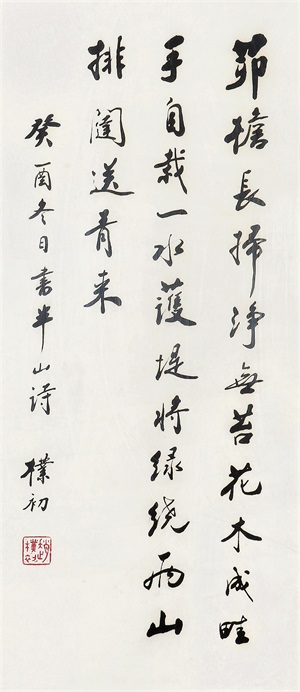 茆檐長掃淨無苔花木成畦
手自栽一水護堤將綠繞兩山
排闥送青来
癸酉冬日書半山詩 樸初
趙樸初